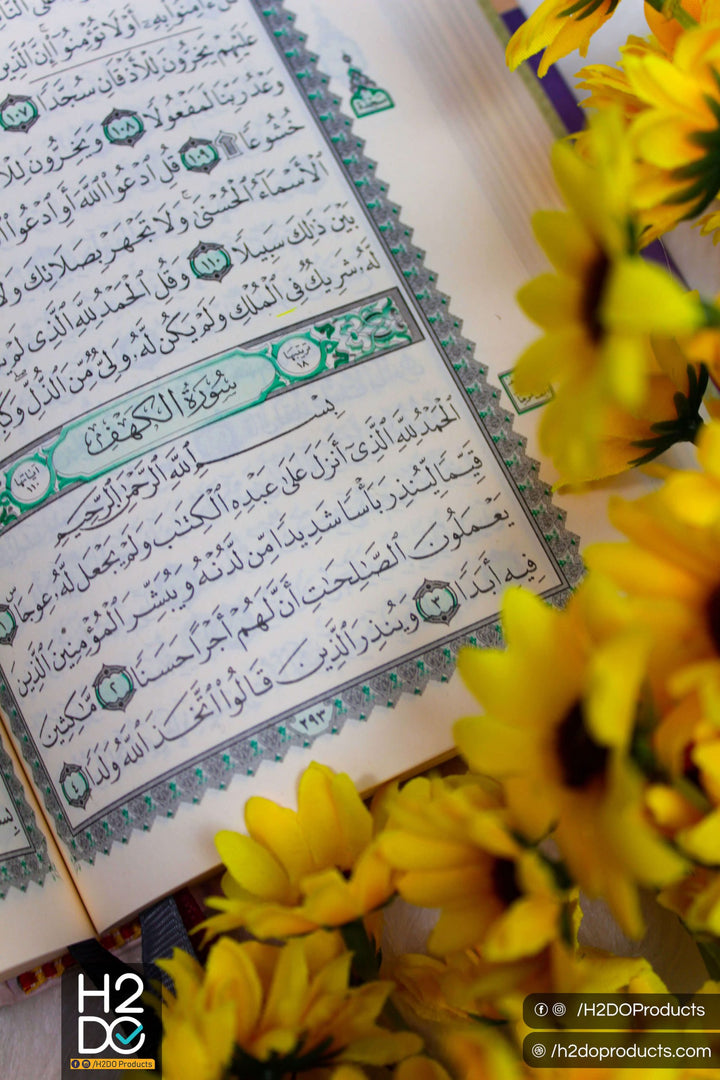 ءَامِنُوا۟ بِهِۦٓ أَوْ لَا تُؤْمِنُوٓا۟ إِنَّ ٱلَّذِينَ
عَلَيْهِمْ يَخِرُّونَ لِلْأَذْقَانِ سُجَّدًا ١٠٧
وَعْدُ رَبِّنَا لَمَفْعُولًا ١٠٨ وَيَخِرُّونَ
خُشُوعًا ١٠٩ قُلِ ٱدْعُوا۟ ٱللَّهَ أَوِ ٱدْعُوا۟
ٱلْأَسْمَآءُ ٱلْحُسْنَىٰ وَلَا تَجْهَرْ بِصَلَاتِكَ
بَيْنَ ذَٰلِكَ سَبِيلًا ١١٠ وَقُلِ ٱلْحَمْدُ لِلَّهِ ٱلَّذِى لَمْ
لَّهُۥ شَرِيكٌ فِى ٱلْمُلْكِ وَلَمْ يَكُن لَّهُۥ وَلِىٌّ مِّنَ ٱلذُّلِّ
سُورَةُ الكهف
ترتيبها ١٨
آياتها ١١٠
بِسْمِ ٱللَّهِ ٱلرَّحْمَٰنِ ٱلرَّحِيمِ
ٱلْحَمْدُ لِلَّهِ ٱلَّذِىٓ أَنزَلَ عَلَىٰ عَبْدِهِ ٱلْكِتَٰبَ وَلَمْ يَجْعَل لَّهُۥ عِوَجَا ١
قَيِّمًا لِّيُنذِرَ بَأْسًا شَدِيدًا مِّن لَّدُنْهُ وَيُبَشِّرَ ٱلْمُؤْمِنِينَ ٱلَّذِينَ
يَعْمَلُونَ ٱلصَّٰلِحَٰتِ أَنَّ لَهُمْ أَجْرًا حَسَنًا ٢ مَّٰكِثِينَ
فِيهِ أَبَدًا ٣ وَيُنذِرَ ٱلَّذِينَ قَالُوا۟ ٱتَّخَذَ ٱللَّهُ وَلَدًا ٤
٢٩٣
H2DO
/H2DOProducts
/H2DOProducts
/h2doproducts.com